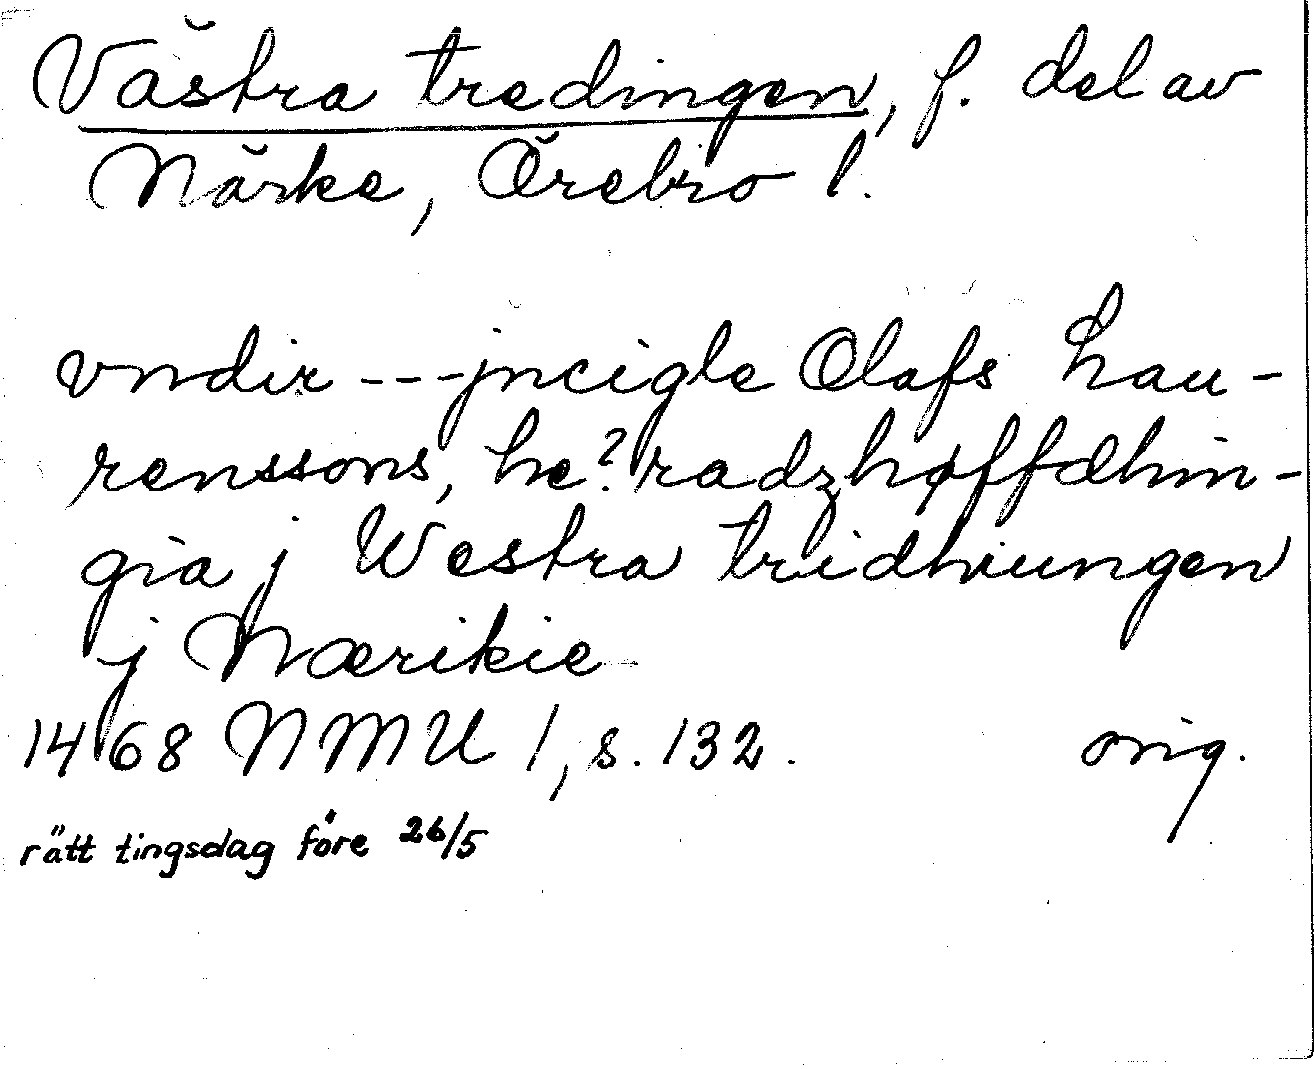 Västra tredingen, f. del av
Närke, Örebro l.
vndir --- jncigle Olafs hau-
renssons, he?radzhøffdhin-
gia j Westra tridhiungen
j Nærikie
1468 NMU 1, s. 132. orig.
rätt tingsdag före 26/5